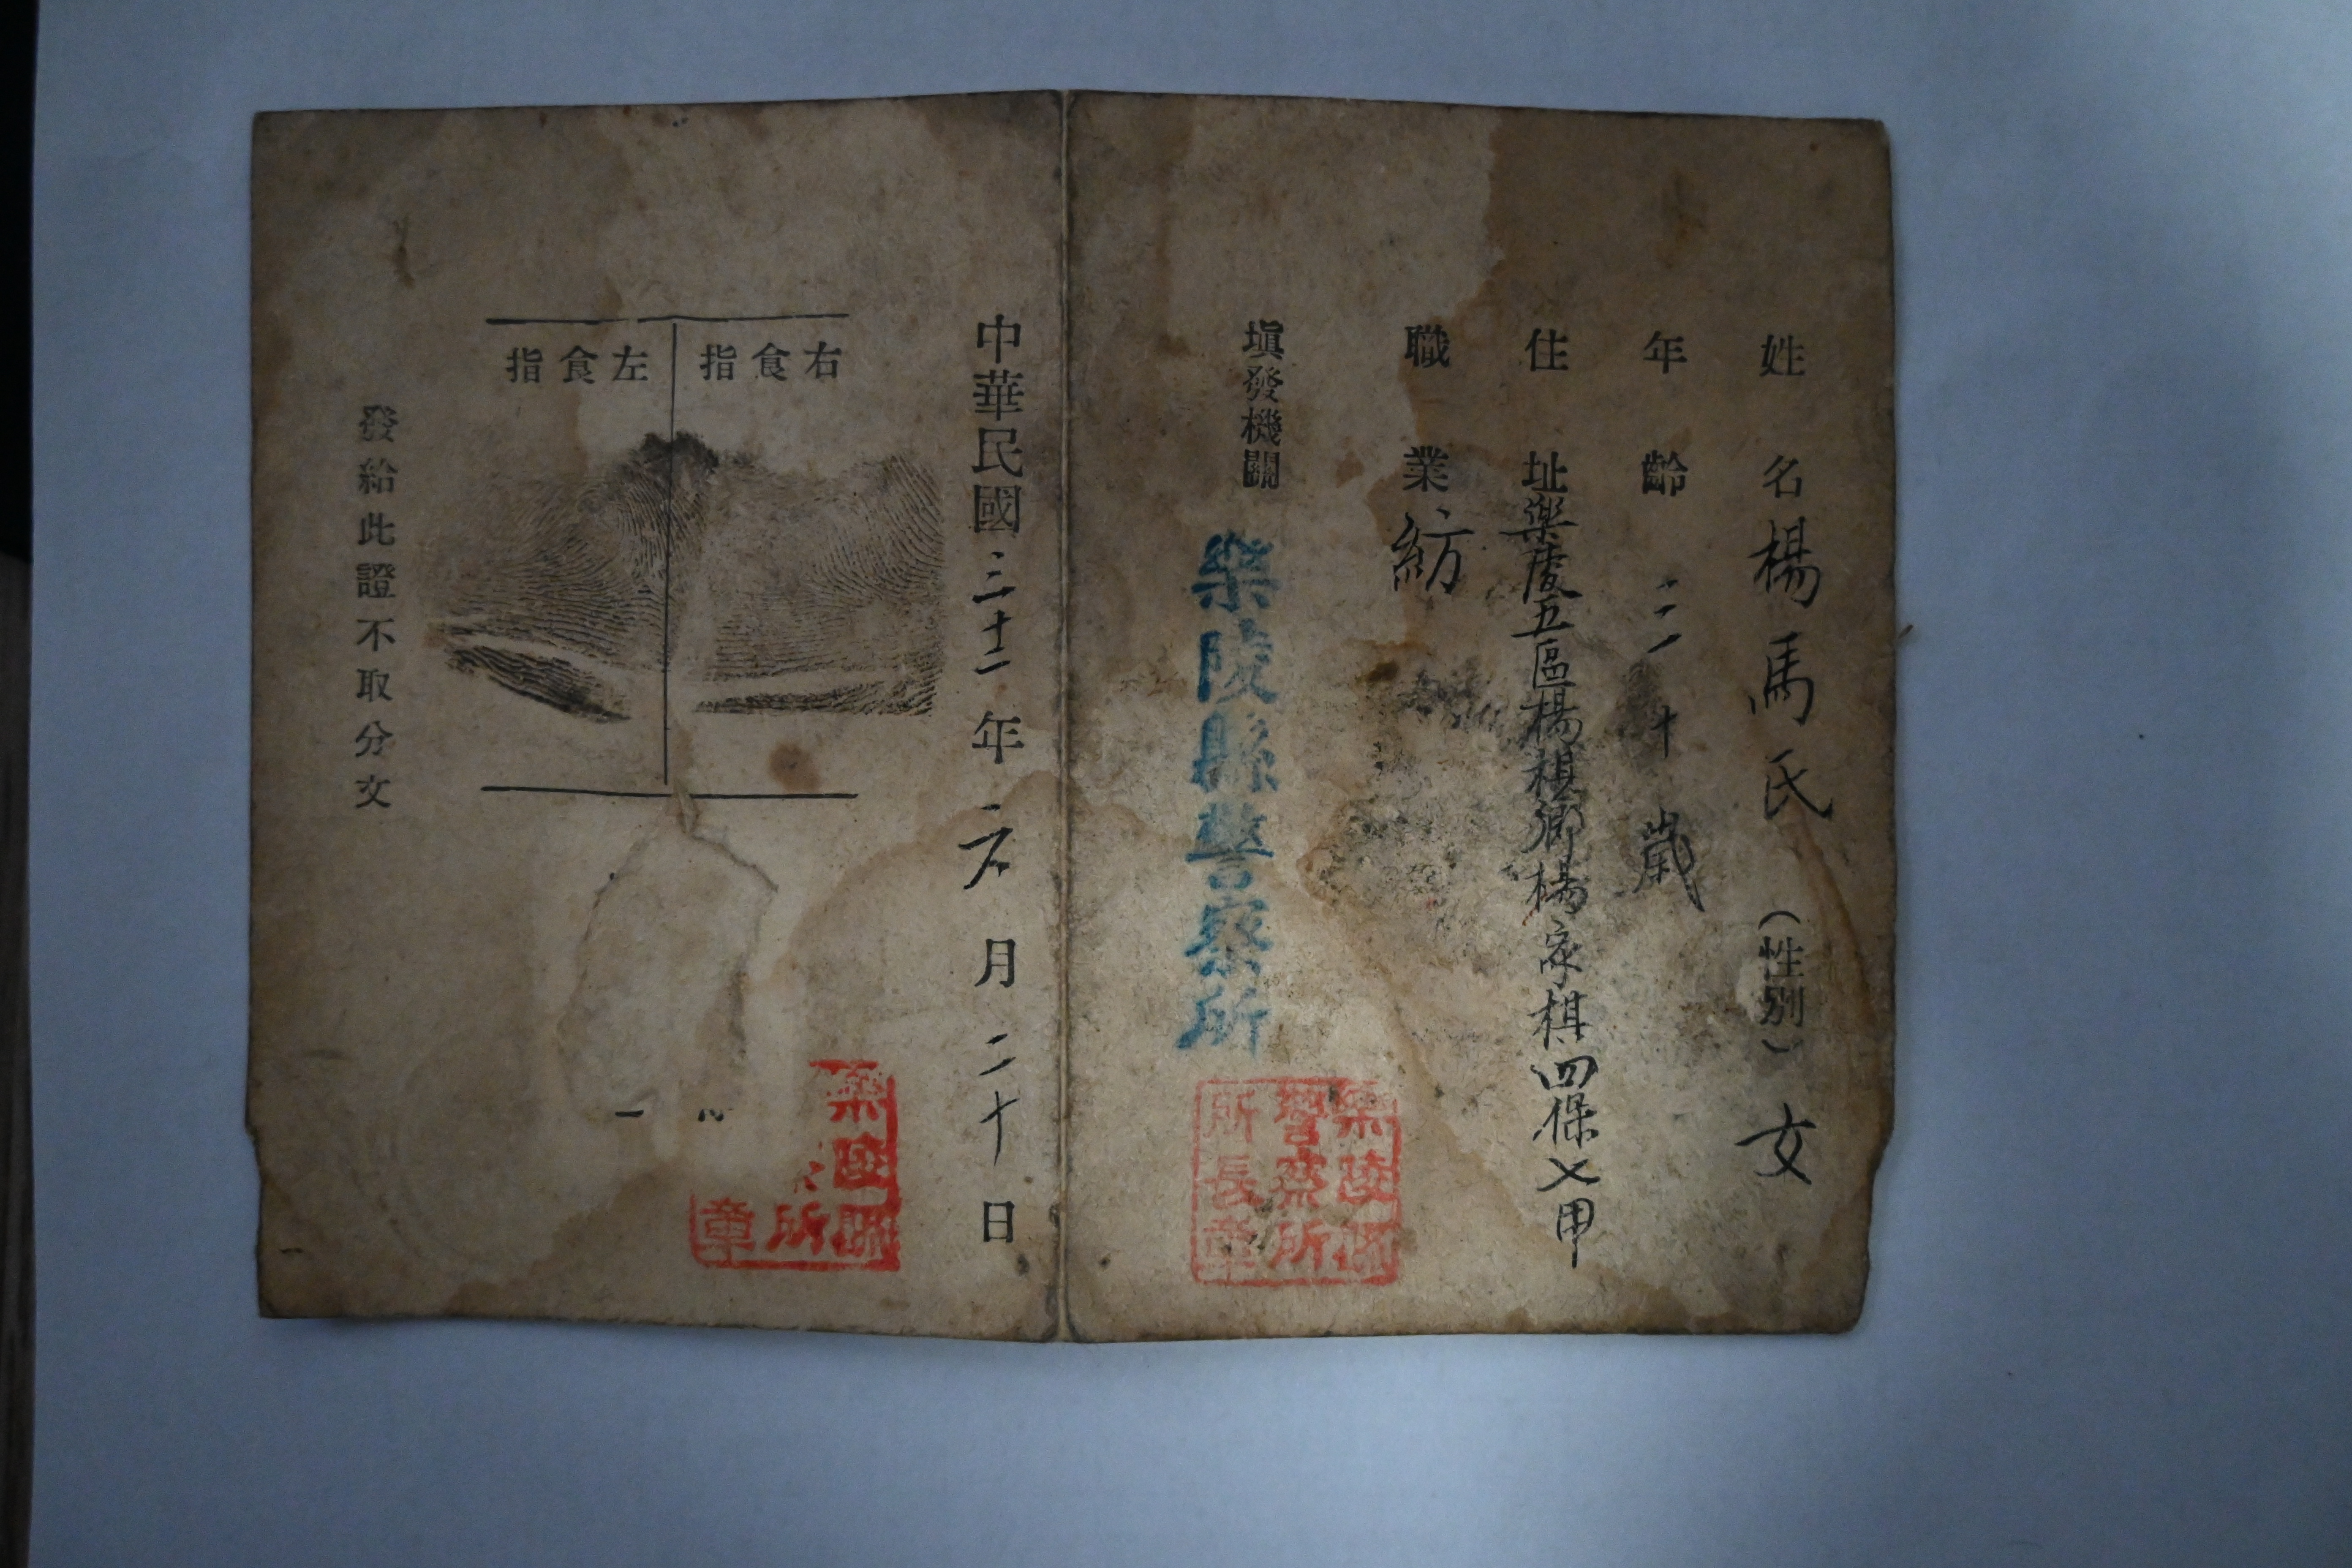 姓名 楊馬氏 (性別) 女
年齡 三十歲
住址 樂陵五區楊棋鄉楊家棋四保乂甲
職業 紡
填發機關 樂陵縣警察所
樂陵縣
警察所
所長章
中華民國三十二年 月二十日
右食指
左食指
樂陵縣
所
章
發給此證不取分文